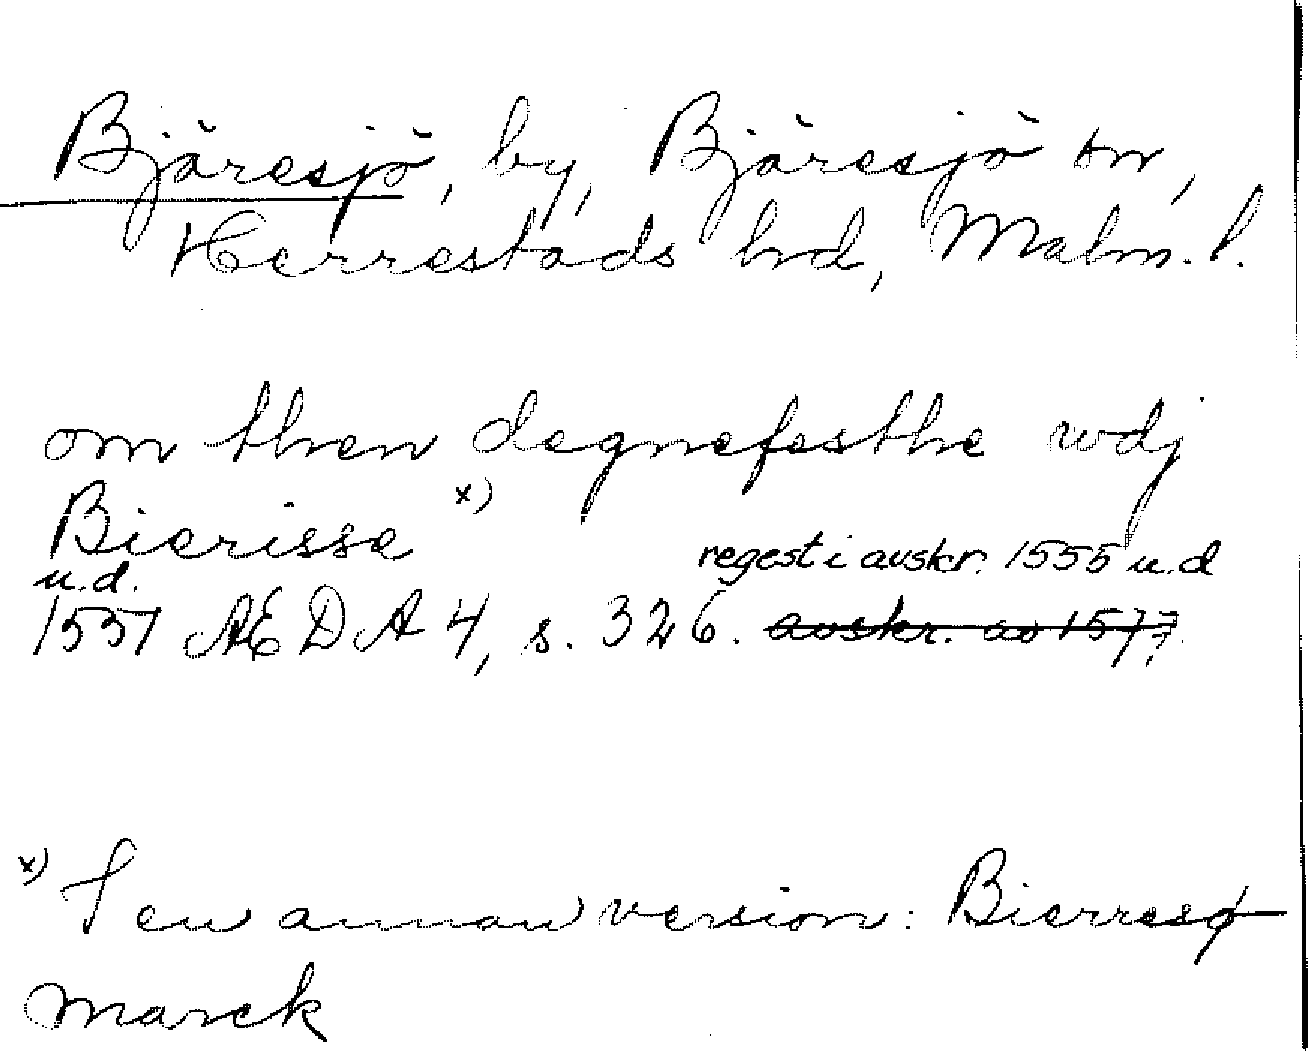 Bjäresjö, by, Bjäresjö sn,
Herrestads hrd, Malm. l.
om then degnefesthe wdj
Bierisse x)
regest i avskr. 1555 u.d
u.d.
1551 AEDA 4, s. 326. avskr. av 1577.
x) I en annan version: Bierresø-
marck